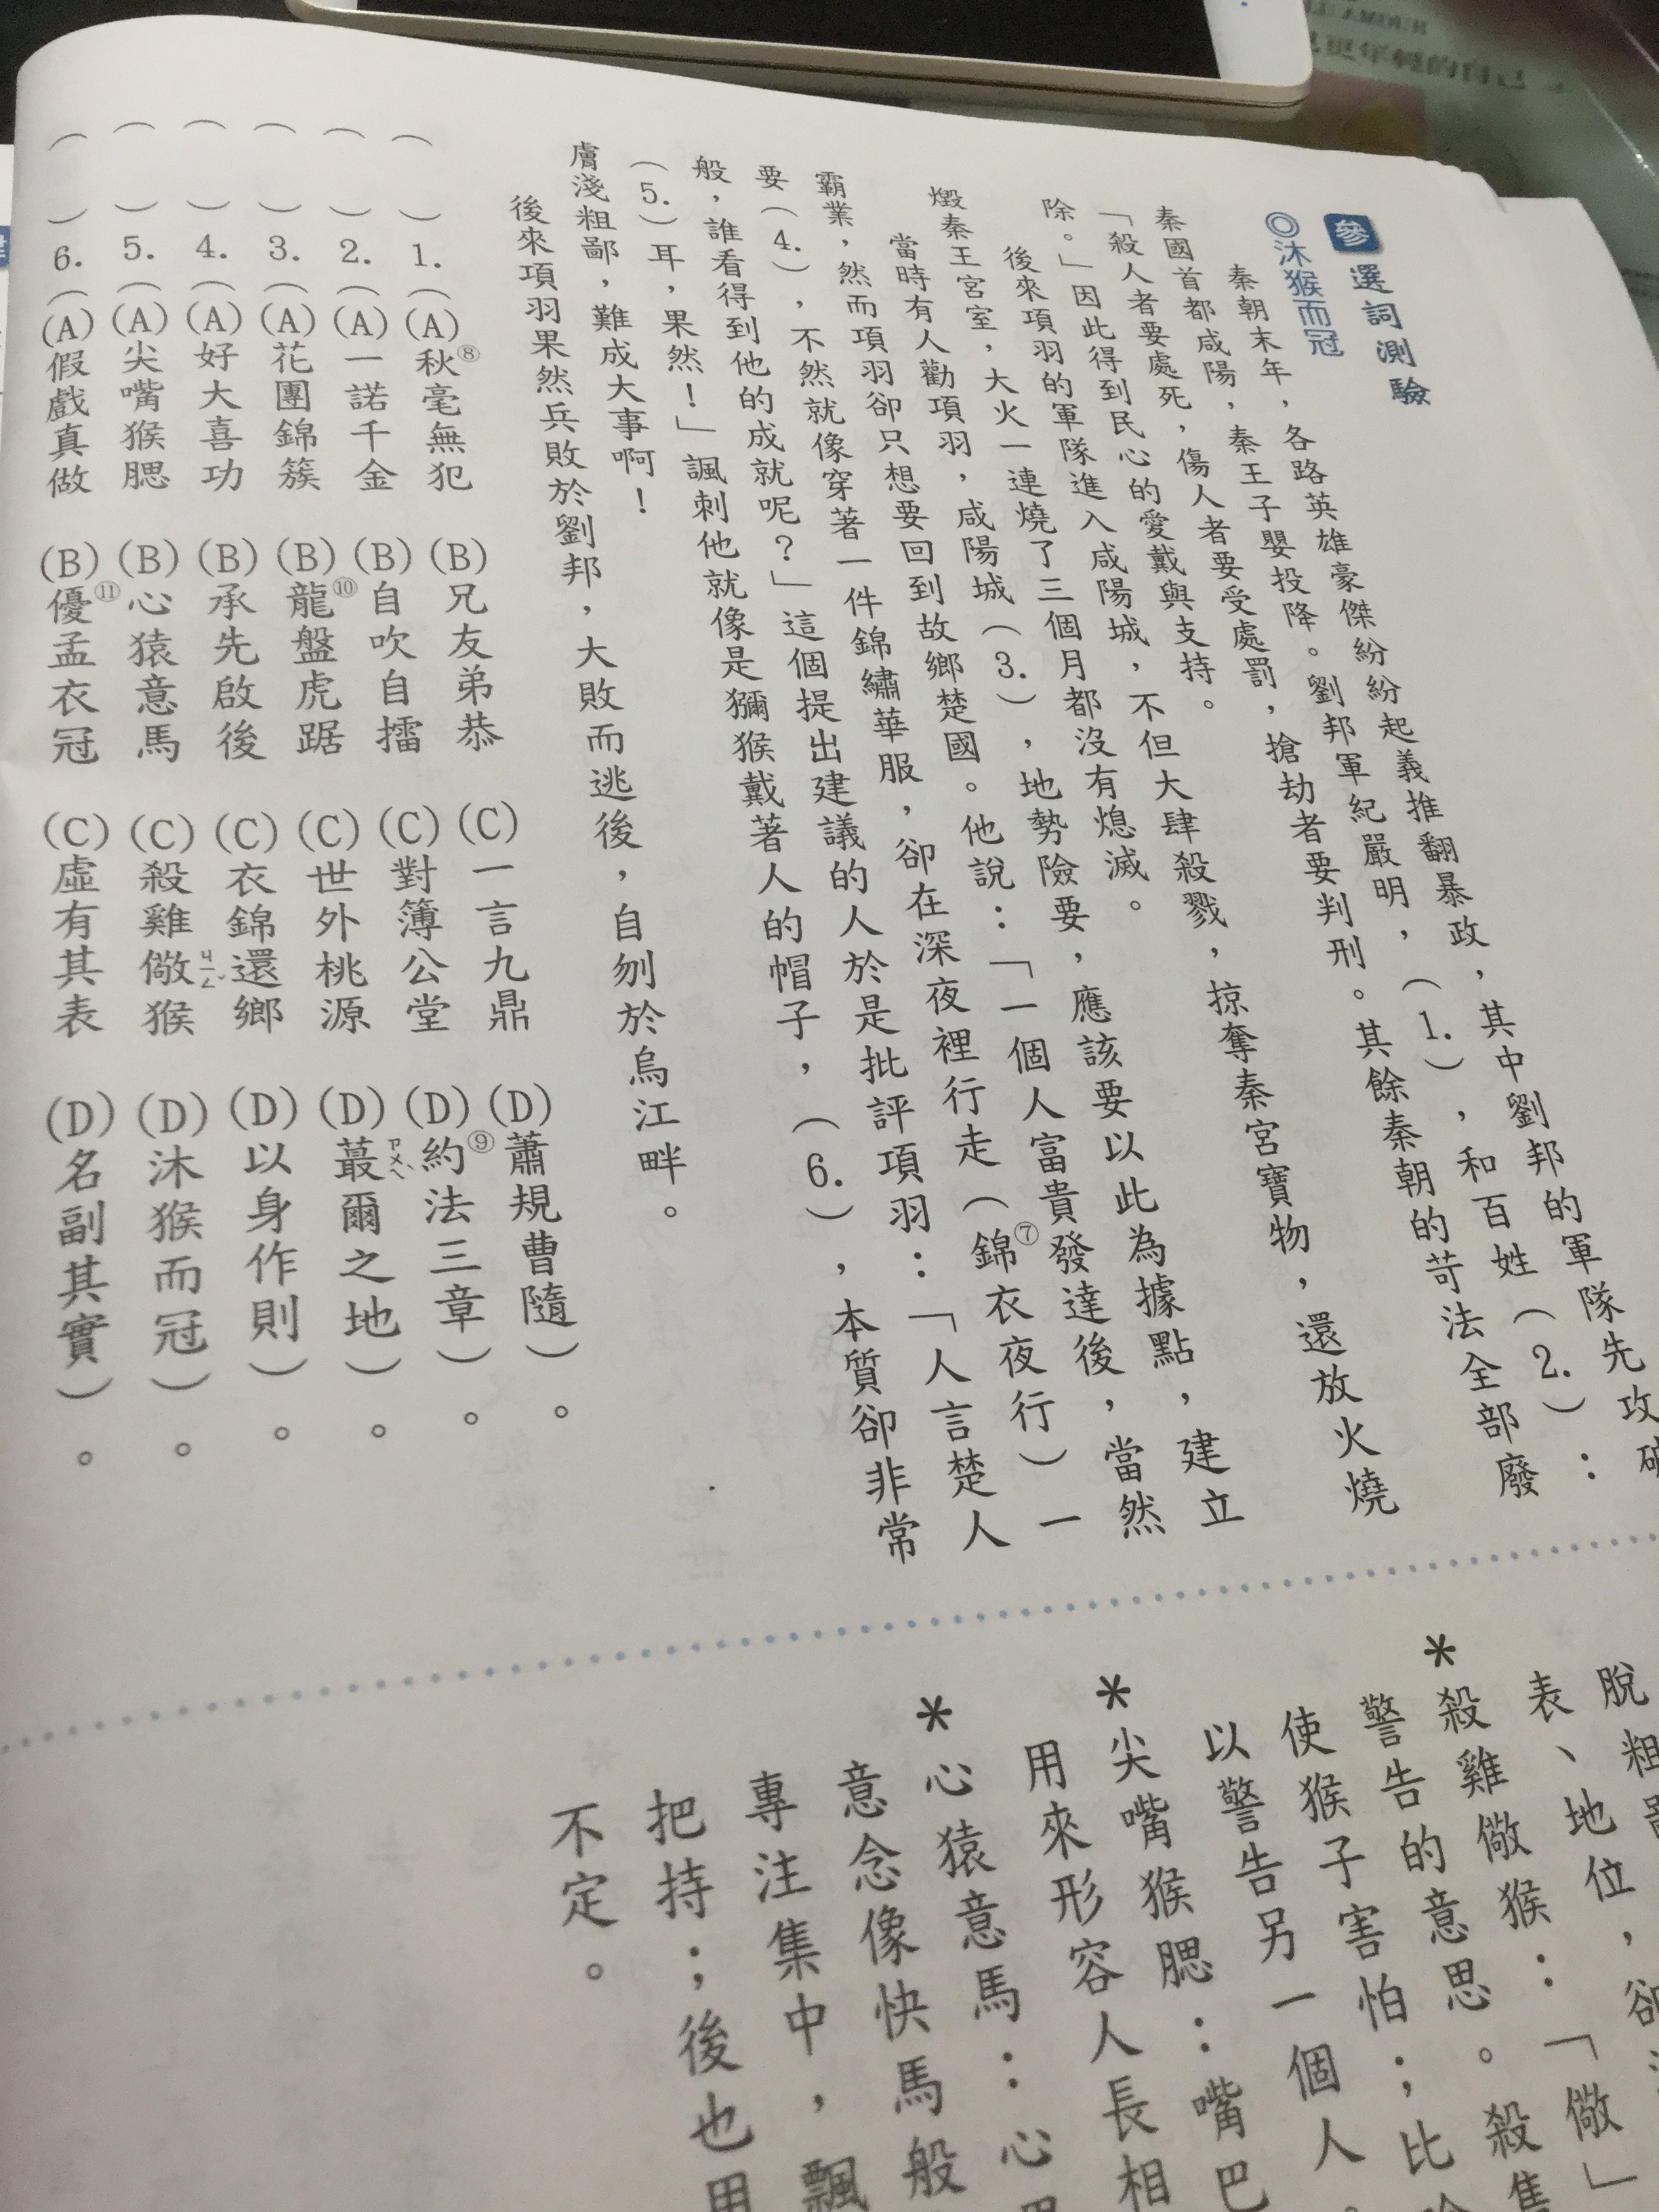 參 選詞測驗
◎沐猴而冠
秦朝末年，各路英雄豪傑紛紛起義推翻暴政，其中劉邦的軍隊先攻破
秦國首都咸陽，秦王子嬰投降。劉邦軍紀嚴明，（1.），和百姓（2.）：
「殺人者要處死，傷人者要受處罰，搶劫者要判刑。其餘秦朝的苛法全部廢
除。」因此得到民心的愛戴與支持。
後來項羽的軍隊進入咸陽城，不但大肆殺戮，掠奪秦宮寶物，還放火燒
燬秦王宮室，大火一連燒了三個月都沒有熄滅。
當時有人勸項羽，咸陽城（3.），地勢險要，應該要以此為據點，建立
霸業，然而項羽卻只想要回到故鄉楚國。他說：「一個人富貴發達後，當然
要（4.），不然就像穿著一件錦繡華服，卻在深夜裡行走（錦⑦衣夜行）一
般，誰看得到他的成就呢？」這個提出建議的人於是批評項羽：「人言楚人
（5.）耳，果然！」諷刺他就像是獼猴戴著人的帽子，（6.），本質卻非常
膚淺粗鄙，難成大事啊！
後來項羽果然兵敗於劉邦，大敗而逃後，自刎於烏江畔。
（　）1.（(A)秋⑧毫無犯 (B)兄友弟恭 (C)一言九鼎 (D)蕭規曹隨）。
（　）2.（(A)一諾千金 (B)自吹自擂 (C)對簿公堂 (D)約⑨法三章）。
（　）3.（(A)花團錦簇 (B)龍⑩盤虎踞 (C)世外桃源 (D)蕞ㄗㄨㄟˋ爾之地）。
（　）4.（(A)好大喜功 (B)承先啟後 (C)衣錦還鄉 (D)以身作則）。
（　）5.（(A)尖嘴猴腮 (B)心猿意馬 (C)殺雞儆ㄐㄧㄥˇ猴 (D)沐猴而冠）。
（　）6.（(A)假戲真做 (B)優⑪孟衣冠 (C)虛有其表 (D)名副其實）。
脫粗
表、地位，卻
＊殺雞儆猴：「儆」
警告的意思。殺雞
使猴子害怕；比
以警告另一個人。
＊尖嘴猴腮：嘴巴
用來形容人長相
＊心猿意馬：心
意念像快馬般
專注集中，飄
把持；後也用
不定。